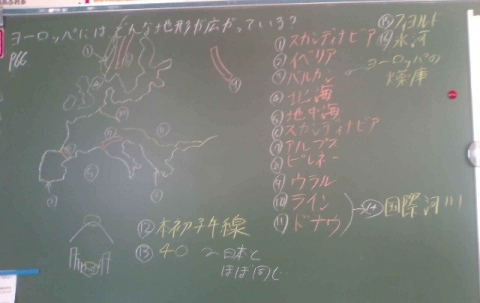 ヨーロッパにはどんな地形が広がっている?
P66
①スカンディナビア
②イベリア
③バルカン
ヨーロッパの
火薬庫
④北海
⑤地中海
⑥スカンディナビア
⑦アルプス
⑧ピレネー
⑨ウラル
⑩ライン
⑪ドナウ
⑭国際河川
⑫本初子午線
⑬40
日本と
ほぼ同じ
フィヨルト
氷河